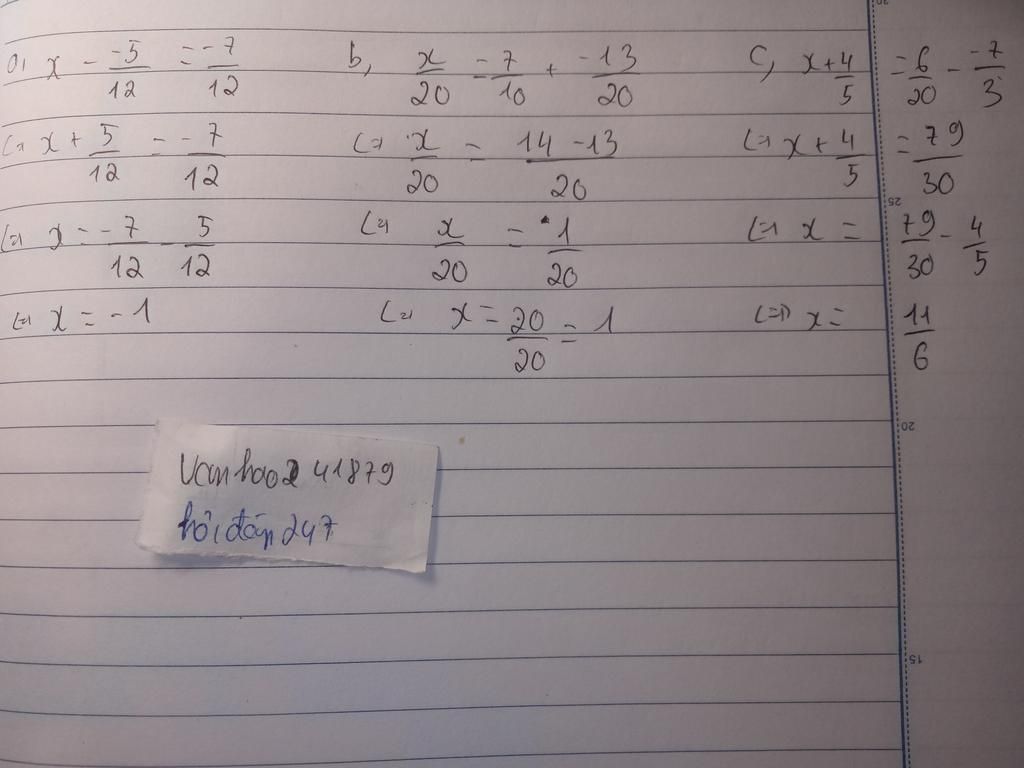 a, x - -5/12 = -7/12
<=> x + 5/12 = -7/12
<=> x = -7/12 - 5/12
<=> x = -1
b, x/20 = 7/10 + -13/20
<=> x/20 = 14 -13/20
<=> x/20 = 1/20
<=> x = 20/20 = 1
c, x + 4/5 = 6/20 - -7/3
<=> x + 4/5 = 79/30
<=> x = 79/30 - 4/5
<=> x = 11/6
Vanhao2 41879
hỏi đáp 247
25
20
15